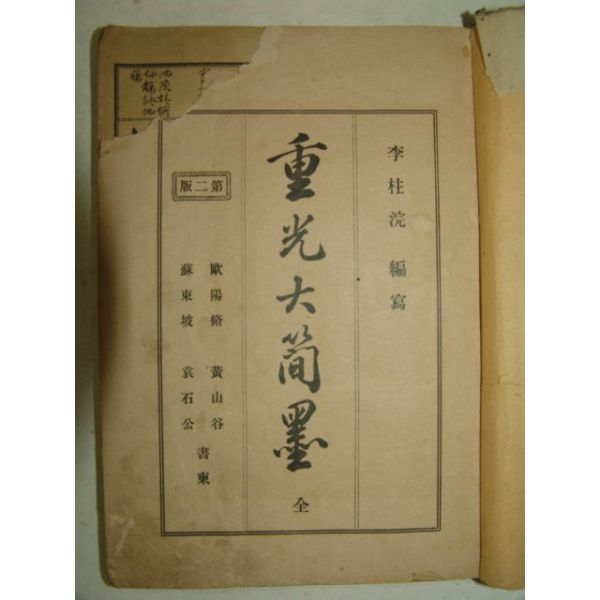 李柱浣 編寫
重光大簡墨 全
第二版
歐陽脩 黃山谷
蘇東坡 袁石公
書柬